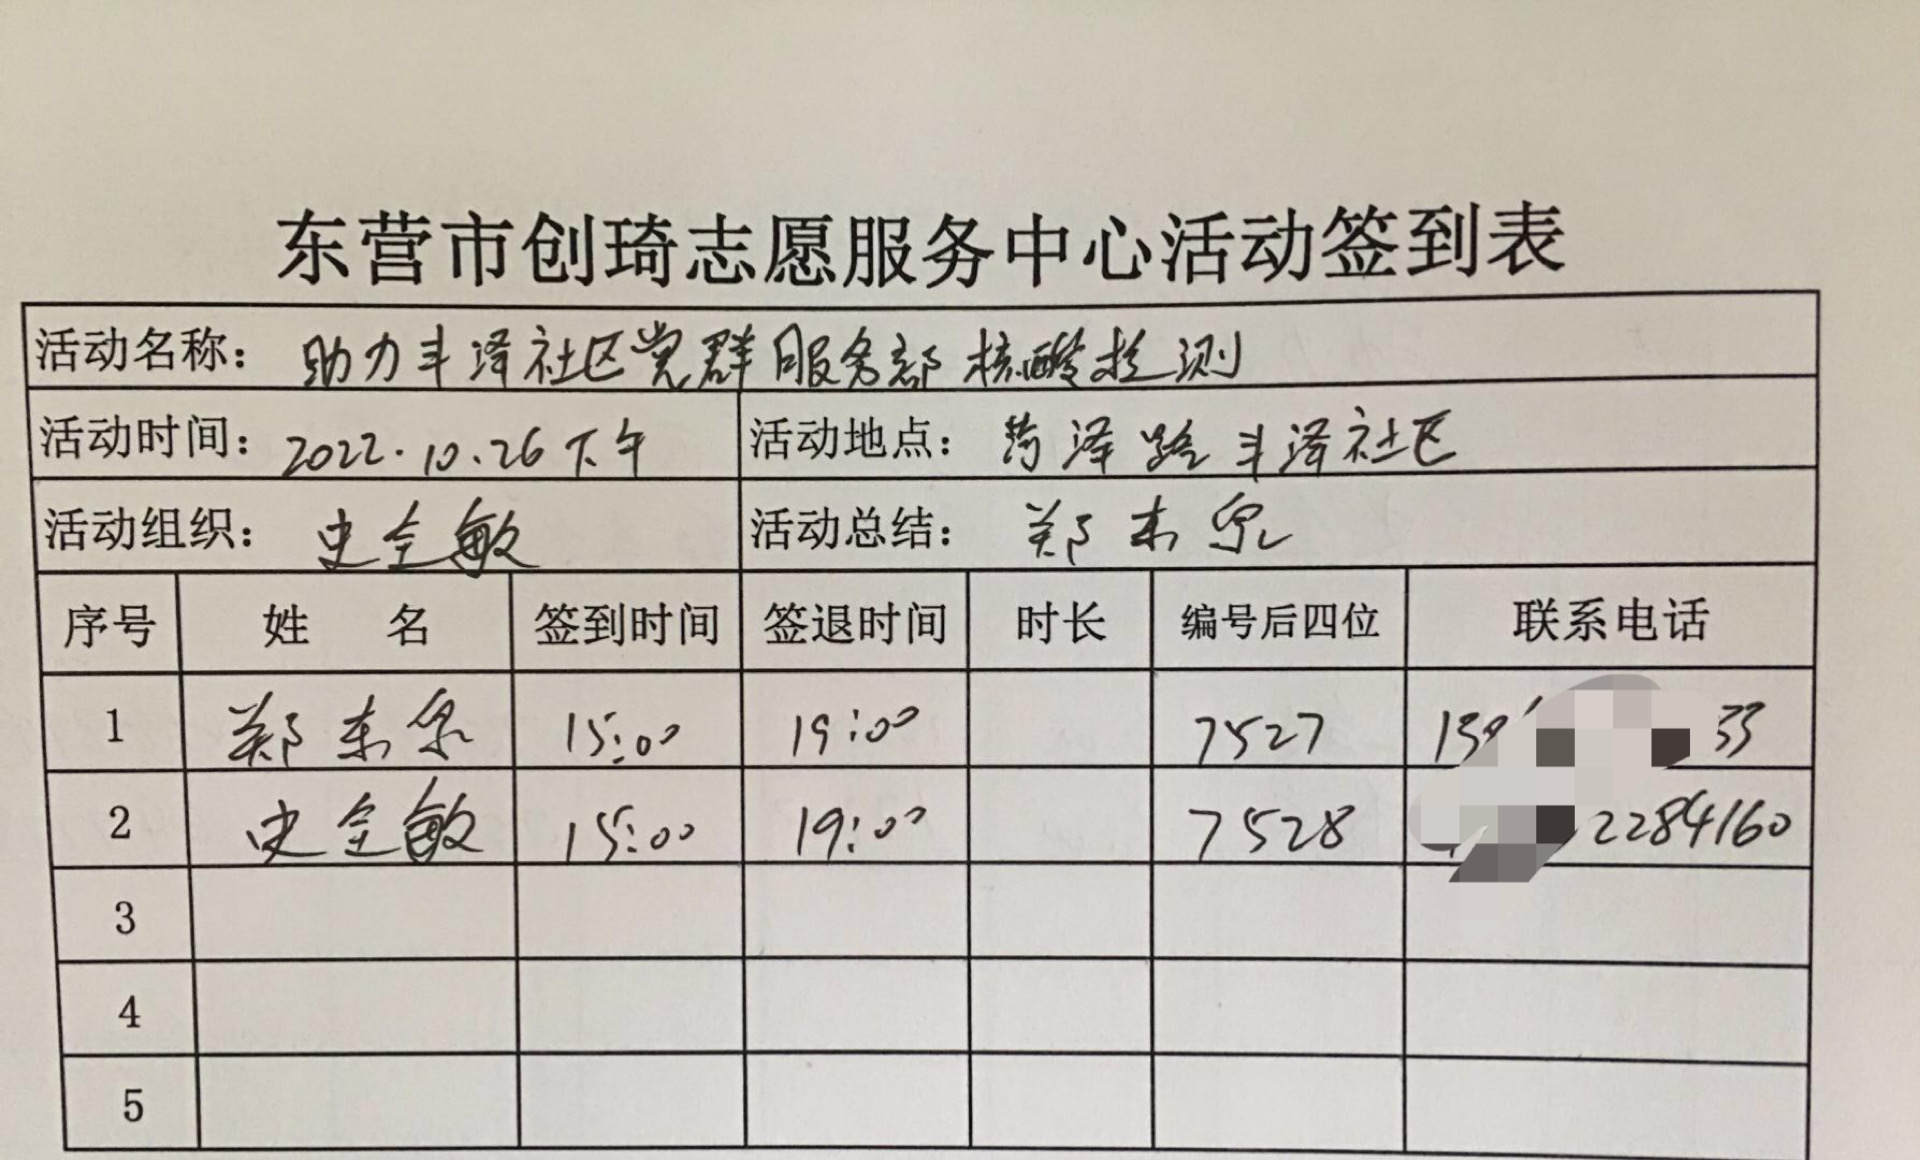 东营市创琦志愿服务中心活动签到表
活动名称： 助力丰泽社区党群服务部核酸检测
活动时间： 2022.10.26下午 活动地点： 菏泽路丰泽社区
活动组织： 史全敏 活动总结： 郑东泉
序号 姓 名 签到时间 签退时间 时长 编号后四位 联系电话
1 郑东泉 15:00 19:00 7527 33
2 史全敏 15:00 19:00 7528 2284160
3
4
5